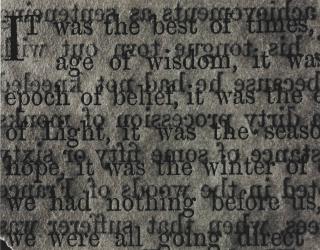 IT was the best of times,
age of wisdom, it was
epoch of belief, it was the
of Light, it was the seaso
hope, it was the winter of
we had nothing before us,
we were all going direct